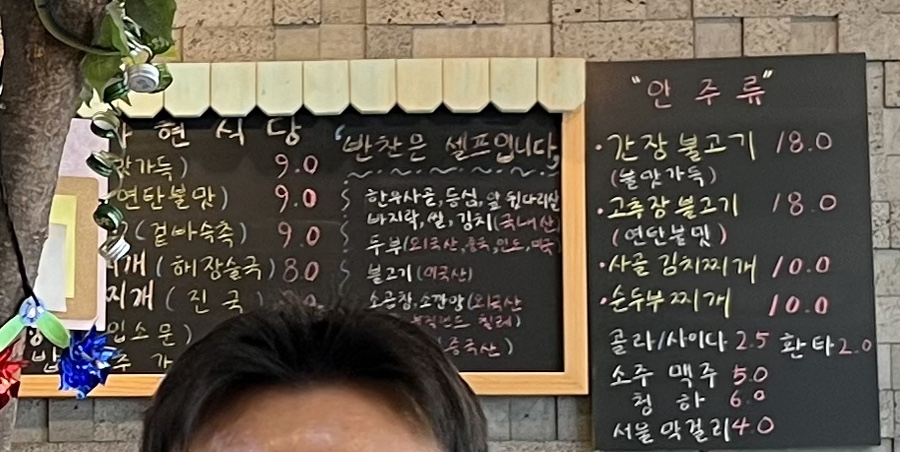 현 식 당
맛가득) 9.0
연탄불맛) 9.0
(겉바속촉) 9.0
개 (해장술국) 8.0
찌개 (진 국)
입소문)
"반찬은 셀프입니다,
한우사골, 등심, 앞 뒷다리살
바지락, 쌀, 김치(국내산)
두부(외국산,
불고기 (미국산)
소곱창, 소깐양(외국산
칠레)
(중국산)
"안 주 류"
·간장 불고기 18.0
(불맛가득)
·고추장 불고기 18.0
(연탄불맛)
·사골 김치찌개 10.0
·순두부찌개 10.0
콜라/사이다 2.5 환타 2.0
소주 맥주 5.0
청 하 6.0
서울 막걸리 4.0